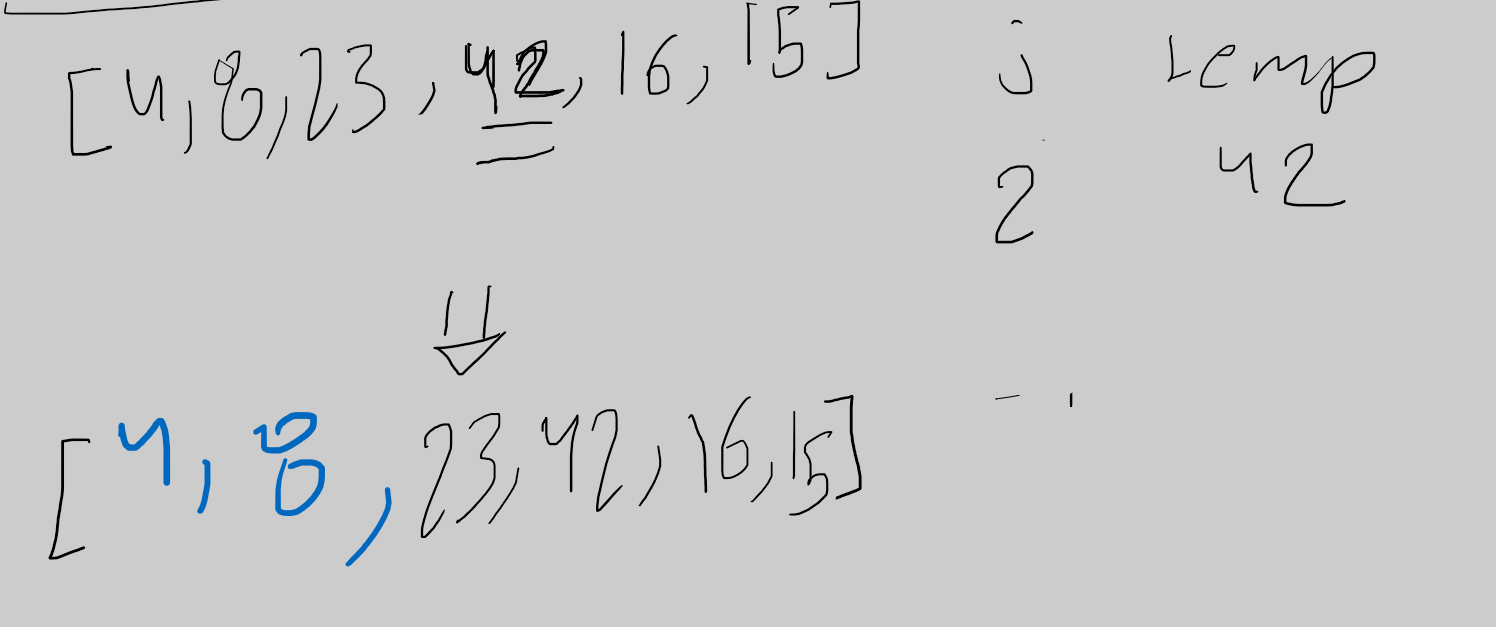 [4, 8, 23, 42, 16, 15] j temp
2 42
[4, 8, 23, 42, 16, 15]